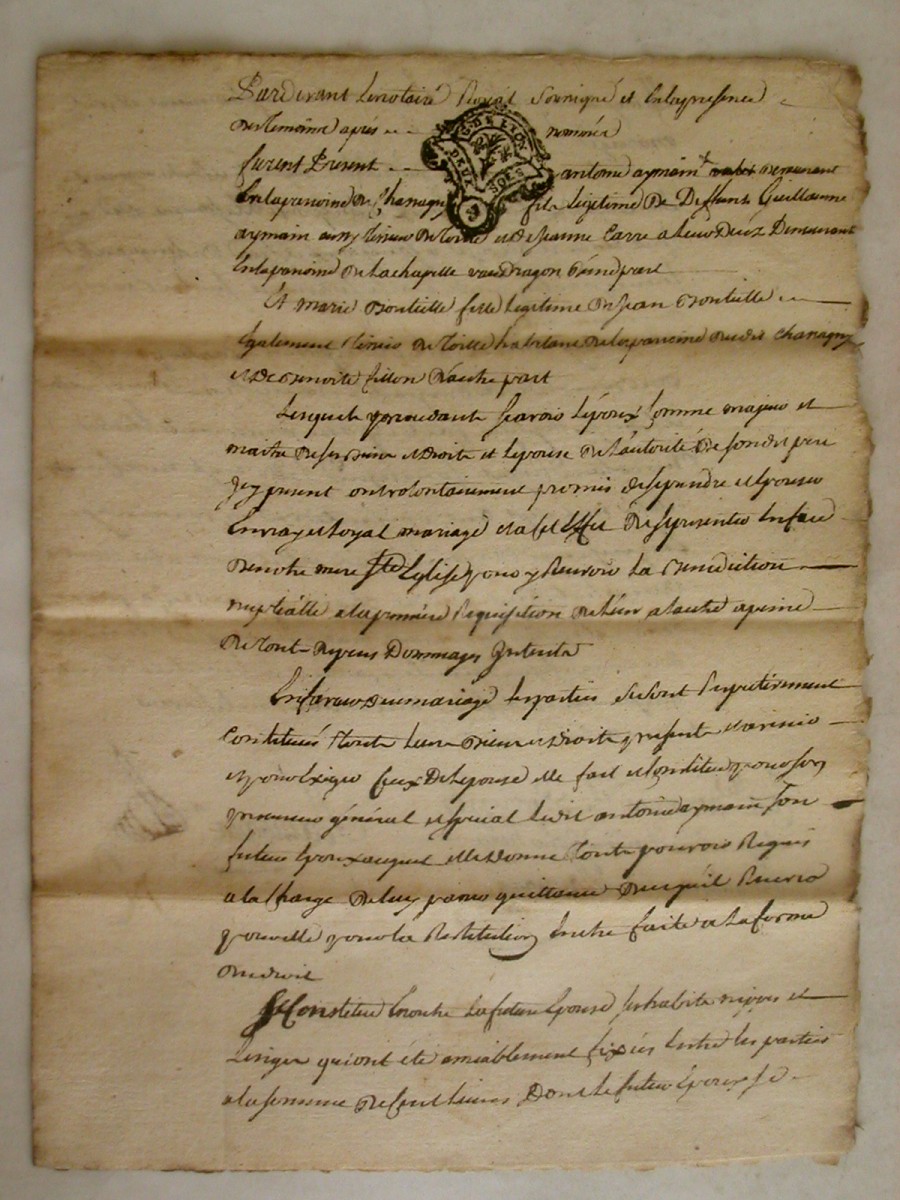 Pardevant le notaire Royal Soussigné et en la presence
des temoins après nommés
G. DE LYON
DEUX SOLS
furent Présent antoine aymain demeurant
en la paroisse de Chanagny fils legitime de Deffunt Guillaume
aymain tisseur de toille et de jeanne Carre a leurs Deux Demeurant
en la paroisse de La chapelle d'une part
Et marie fille Legitime de jean
Egalement tisseur de toille habitant de la paroisse dudit Chanagny
et de Benoite fillon d'autre part
Lesquels procedants Sçavoir L'époux Comme majeur et
maitre de ses Biens et Droits et L'epouse de L'autorité de sondit pere
jcy present ont volontairement promis de se prendre et Epouser
En vray et loyal mariage et a cet Effet de se presenter En face
de notre mere Ste Eglise pour y Recevoir La Benediction
nuptialle a la premiere Requisition de L'un a L'autre a peine
de tout depens Dommages jnterets
En faveur du mariage les parties se sont Respectivement
Constitués tout leurs Biens et Droits present et avenir
et pour Exiger Ceux de Lepouse elle fait et Constitue pour son
procureur général et special Ledit antoine aymain son
futur Epoux auquel elle donne tout pouvoir Requis
a la Charge de luy passer quittance de ce qu'il Recevra
pour elle pour la Restitution En etre faite a La forme
du droit
Se Constitue Encore La future Epouse ses habits nippes et
Linges qui ont été amiablement fixées Entre les parties
a la somme de Cent Livres Dont Le futur Epoux se